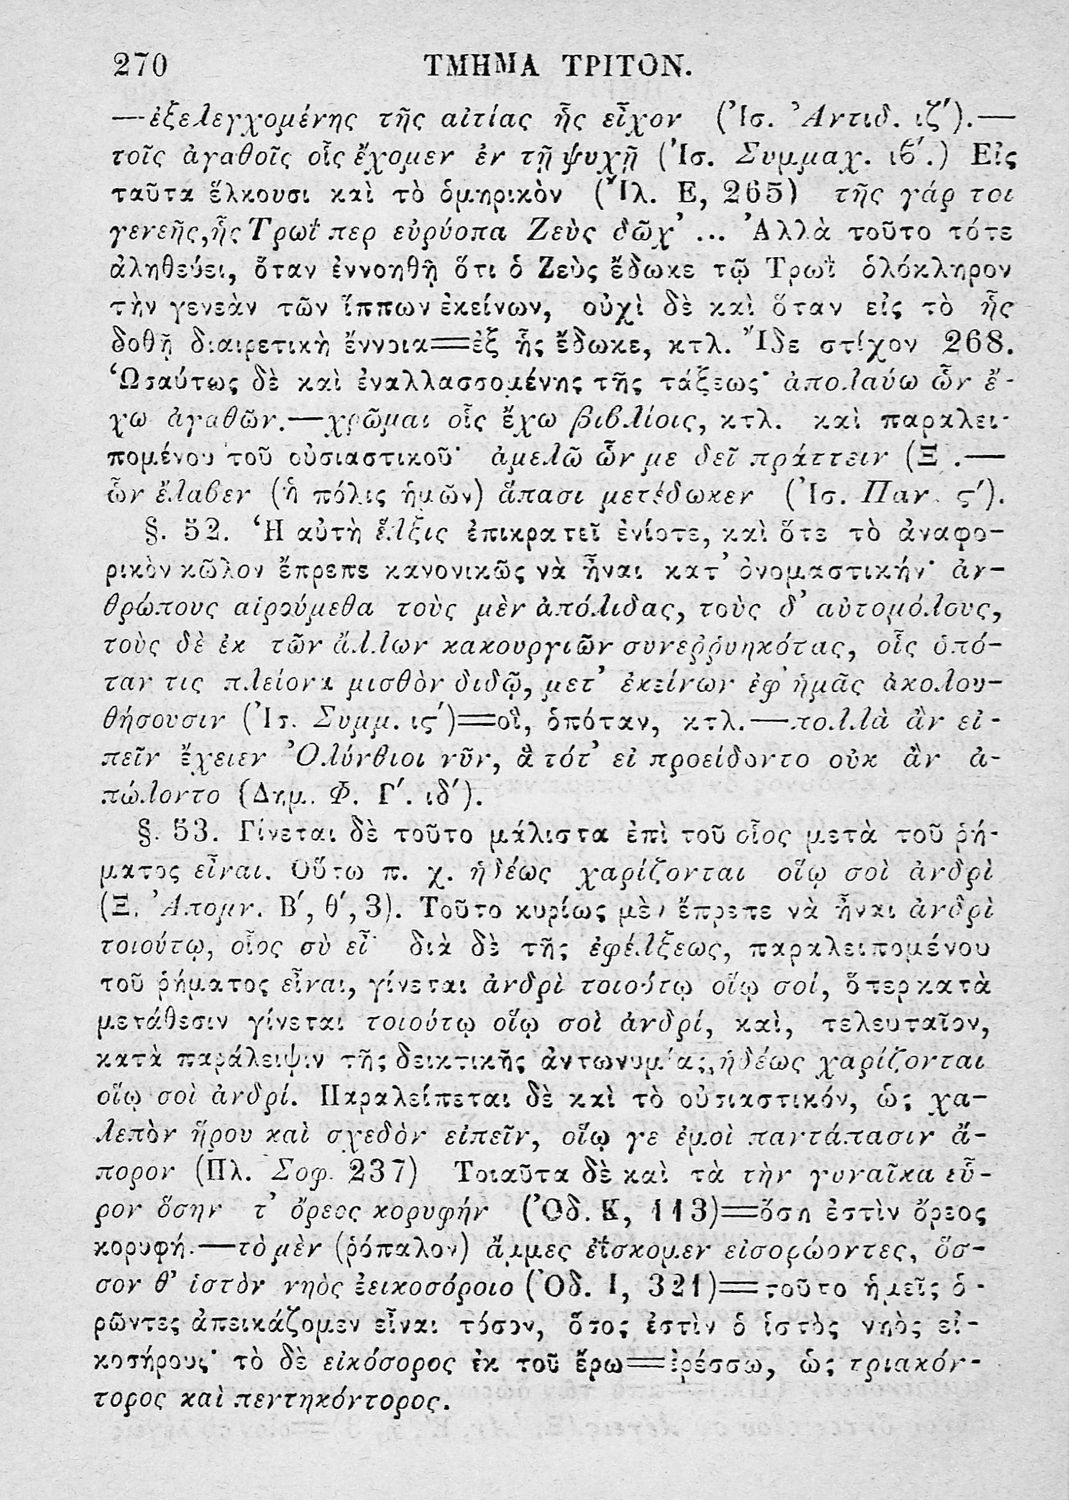 270 ΤΜΗΜΑ ΤΡΙΤΟΝ.
—ἐξελεγχομένης τῆς αἰτίας ἧς εἶχον (Ἰσ. Ἀντιδ. ιζ΄).—
τοῖς ἀγαθοῖς οἷς ἔχομεν ἐν τῇ ψυχῇ (Ἰσ. Συμμαχ. ιϐ΄.) Εἰς
ταῦτα ἕλκουσι καὶ τὸ ὁμηρικὸν (Ἰλ. Ε, 265) τῆς γάρ τοι
γενεῆς, ἧς Τρωΐ περ εὐρύοπα Ζεὺς δῶχ᾿ ... Ἀλλὰ τοῦτο τότε
ἀληθεύει, ὅταν ἐννοηθῇ ὅτι ὁ Ζεὺς ἔδωκε τῷ Τρωῒ ὁλόκληρον
τὴν γενεὰν τῶν ἵππων ἐκείνων, οὐχὶ δὲ καὶ ὅταν εἰς τὸ ἧς
δοθῇ διαιρετικὴ ἔννοια=ἐξ ἧς ἔδωκε, κτλ. Ἴδε στίχον 268.
Ὡσαύτως δὲ καὶ ἐναλλασσομένης τῆς τάξεως· ἀπολαύω ὧν ἔ-
χω ἀγαθῶν.—χρῶμαι οἷς ἔχω βιβλίοις, κτλ. καὶ παραλει-
πομένου τοῦ οὐσιαστικοῦ· ἀμελῶ ὧν με δεῖ πράττειν (Ξ .—
ὧν ἔλαβεν (ἡ πόλις ἡμῶν) ἅπασι μετέδωκεν (Ἰσ. Παν. ς΄).
§. 52. Ἡ αὐτὴ ἕλξις ἐπικρατεῖ ἐνίοτε, καὶ ὅτε τὸ ἀναφο-
ρικὸν κῶλον ἔπρεπε κανονικῶς νὰ ἦναι κατ᾿ ὀνομαστικήν· ἀν-
θρώπους αἱρούμεθα τοὺς μὲν ἀπόλιδας, τοὺς δ᾿ αὐτομόλους,
τοὺς δὲ ἐκ τῶν ἄλλων κακουργιῶν συνεῤῥυηκότας, οἷς ὁπό-
ταν τις πλείονα μισθὸν διδῷ, μετ᾿ ἐκείνων ἐφ᾿ ἡμᾶς ἀκολου-
θήσουσιν (Ἰσ. Συμμ. ις΄)=οἵ, ὁπόταν, κτλ.—πολλὰ ἂν εἰ-
πεῖν ἔχειεν Ὀλύνθιοι νῦν, ἃ τότ᾿ εἰ προείδοντο οὐκ ἂν ἀ-
πώλοντο (Δημ. Φ. Γ΄. ιδ΄).
§. 53. Γίνεται δὲ τοῦτο μάλιστα ἐπὶ τοῦ οἷος μετὰ τοῦ ῥή-
ματος εἶναι. Οὕτω π. χ. ἡδέως χαρίζονται οἵῳ σοὶ ἀνδρὶ
(Ξ. Ἀπομν. Β΄, θ΄, 3). Τοῦτο κυρίως μὲν ἔπρεπε νὰ ἦναι ἀνδρὶ
τοιούτῳ, οἷος σὺ εἶ· διὰ δὲ τῆς ἐφέλξεως, παραλειπομένου
τοῦ ῥήματος εἶναι, γίνεται ἀνδρὶ τοιούτῳ οἵῳ σοί, ὅπερ κατὰ
μετάθεσιν γίνεται τοιούτῳ οἵῳ σοὶ ἀνδρί, καὶ, τελευταῖον,
κατὰ παράλειψιν τῆς δεικτικῆς ἀντωνυμίας, ἡδέως χαρίζονται
οἵῳ σοὶ ἀνδρί. Παραλείπεται δὲ καὶ τὸ οὐσιαστικόν, ὡς χα-
λεπὸν ἥρου καὶ σχεδὸν εἰπεῖν, οἵῳ γε ἐμοὶ παντάπασιν ἄ-
πορον (Πλ. Σοφ. 237) Τοιαῦτα δὲ καὶ τὰ τὴν γυναῖκα εὗ-
ρον ὅσην τ᾿ ὄρεος κορυφήν (Ὀδ. Κ, 113)=ὅση ἐστὶν ὄρεος
κορυφή.—τὸ μὲν (ῥόπαλον) ἄμμες ἐΐσκομεν εἰσορόωντες, ὅσ-
σον θ᾿ ἱστὸν νηὸς ἐεικοσόροιο (Ὀδ. Ι, 321)=τοῦτο ἡμεῖς ὁ-
ρῶντες ἀπεικάζομεν εἶναι τόσον, ὅσος ἐστὶν ὁ ἱστὸς νηὸς εἰ-
κοσήρους· τὸ δὲ εἰκόσορος ἐκ τοῦ ἔρω=ἐρέσσω, ὡς τριακόν-
τορος καὶ πεντηκόντορος.